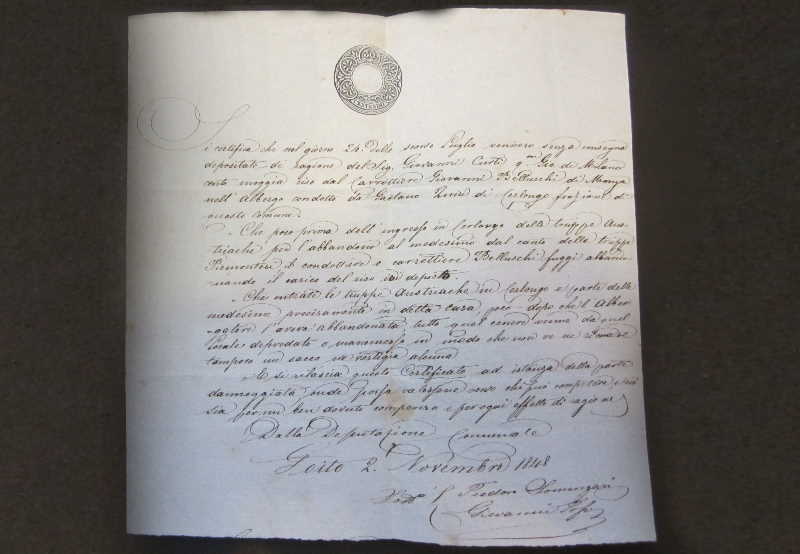 Si certifica che nel giorno 24 dello scorso Luglio vennero senza insegna
depositate di ragione del Sig. Giovanni Curti qm Gio di Milano
moggia riso dal Carrettiere Giovanni Belluschi di Monza
nell'Albergo condotto da Gaetano di Cerlongo frazione di
questo comune.
Che poco prima dell'ingresso in Cerlongo delle truppe Aus-
triache per l'abbandono al medesimo dal canto delle truppe
Piemontesi, il condottiere o carrettiere Belluschi fuggì abbando
nando il carico del riso in deposito.
Che entrate le truppe Austriache in Cerlongo e parte delle
medesime precisamente in detta casa poco dopo che l'Alber-
gatore l'aveva abbandonata, tutto qual genere venne da quel
locale depredato e manomesso in modo che non ve ne rimase
tampoco un sacco ne vestigia alcuna
E si rilascia questo Certificato ad istanza della parte
danneggiata onde possa valersene verso chi può competere, e ciò
sia per un ben dovuto compenso e per ogni effetto di ragione
Dalla Deputazione Comunale
Goito 2. Novembre 1848
Giovanni